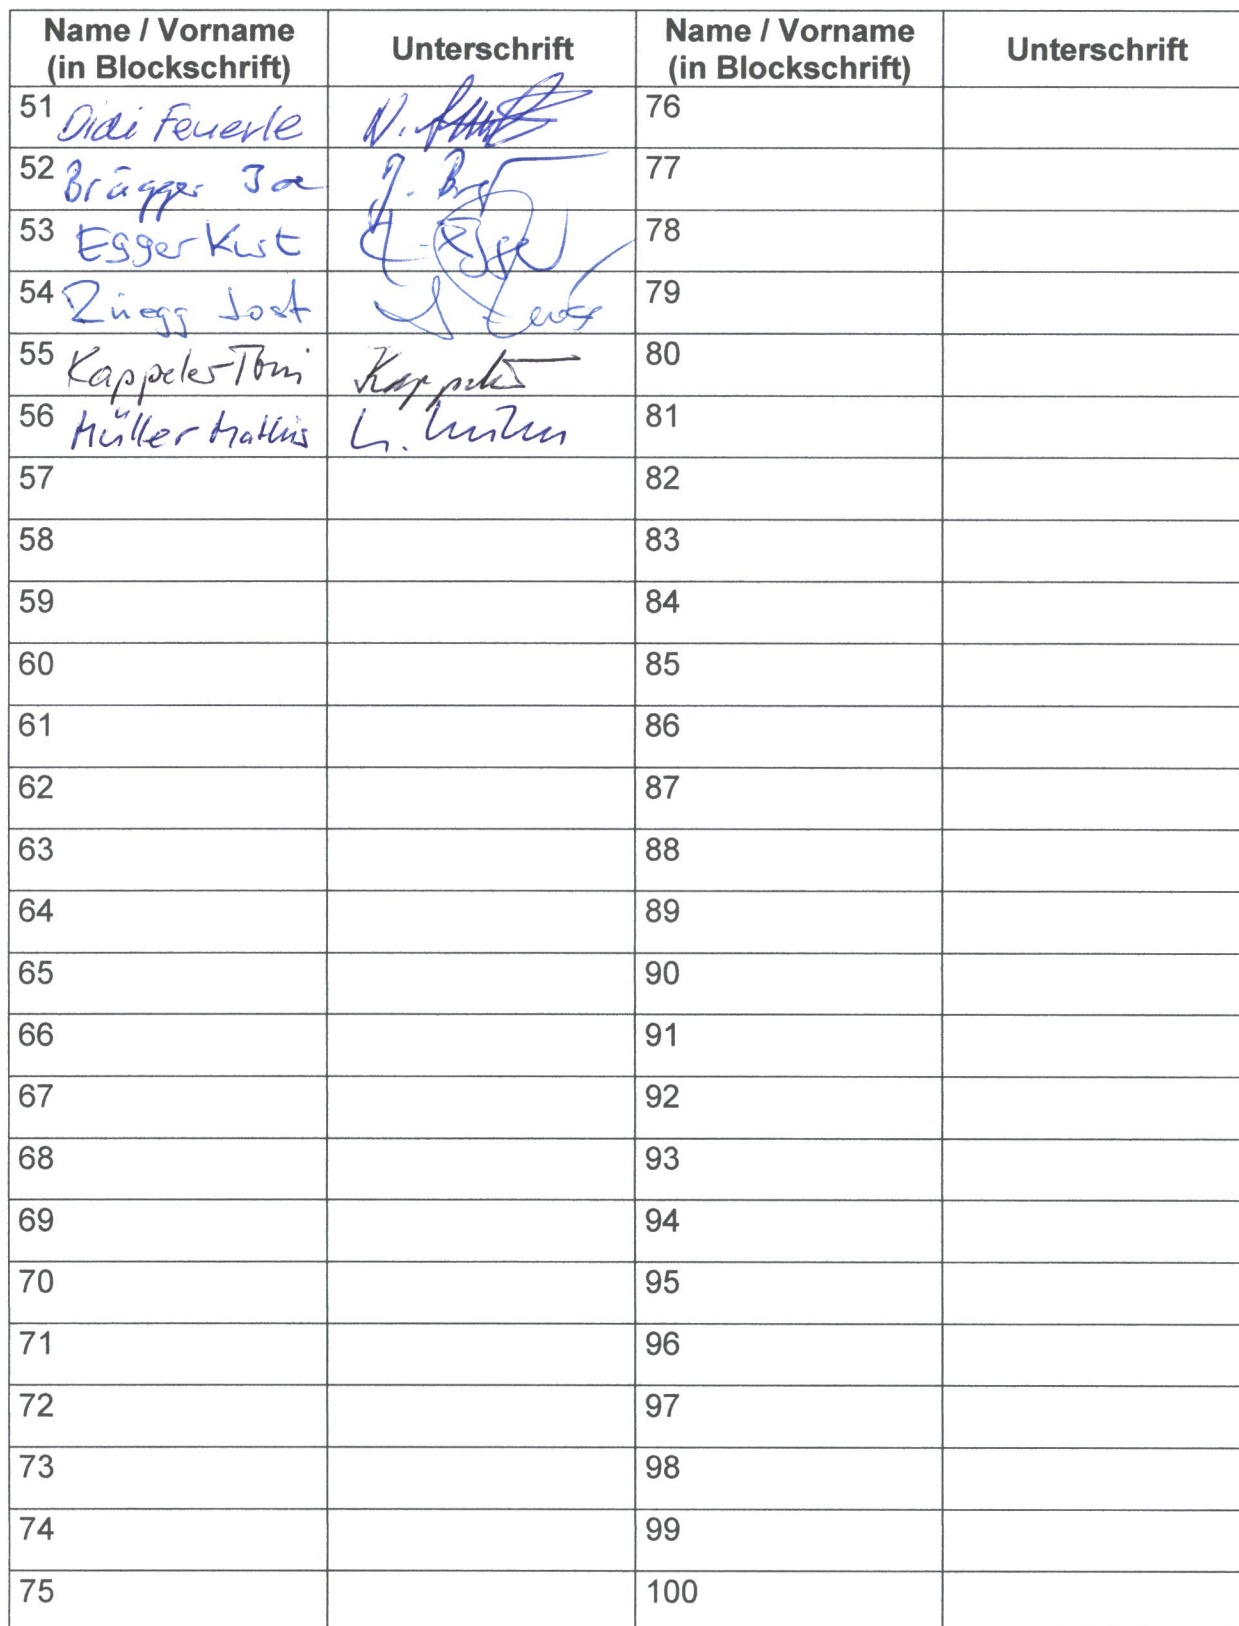 Name / Vorname (in Blockschrift) Unterschrift Name / Vorname (in Blockschrift) Unterschrift
51 Didi Feuerle 76
52 Brügger Joe 77
53 Egger Kurt 78
54 Rüegg Jost 79
55 Kappeler Toni Kappeler 80
56 Müller Mathis 81
57 82
58 83
59 84
60 85
61 86
62 87
63 88
64 89
65 90
66 91
67 92
68 93
69 94
70 95
71 96
72 97
73 98
74 99
75 100